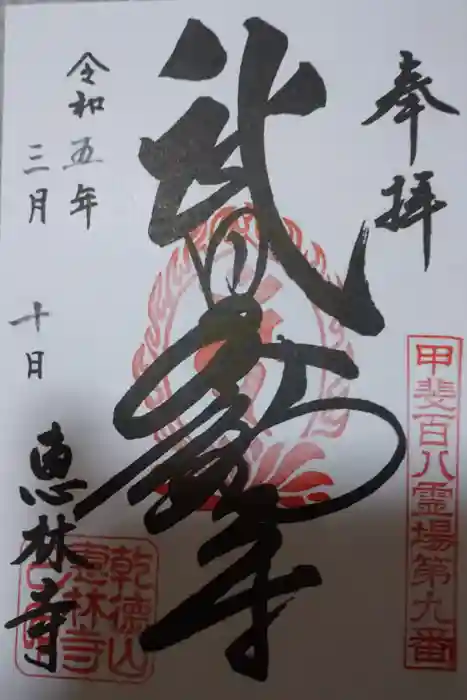 奉拝
甲斐百八霊場第九番
武田不動尊
令和五年
三月
十日
恵林寺
乾徳山
恵林寺